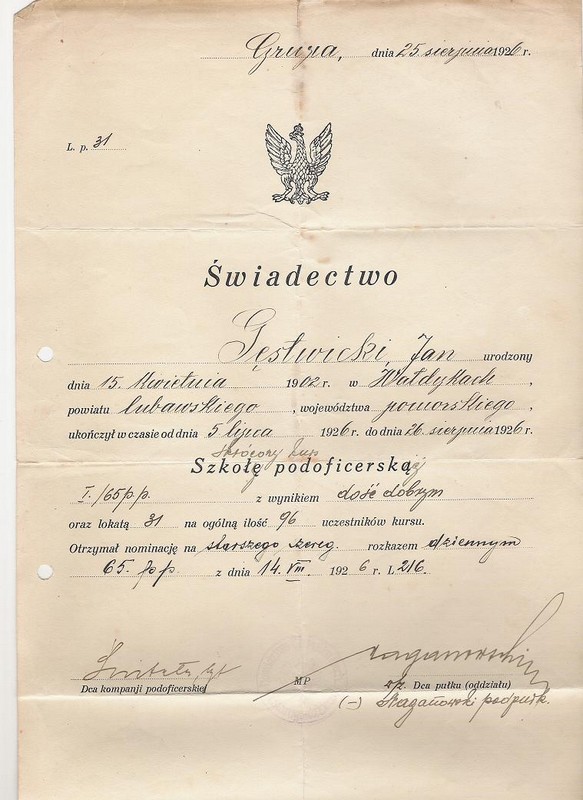 Grupa, dnia 25 sierpnia 1926 r.
L. p. 31
Świadectwo
Gęstwicki, Jan urodzony
dnia 15. Kwietnia 1902 r. w Wałdykach,
powiatu lubawskiego, województwa pomorskiego,
ukończył w czasie od dnia 5 lipca 1926 r. do dnia 26. sierpnia 1926 r.
skrócony kurs
Szkołę podoficerską
I./65 p.p. z wynikiem dość dobrym
oraz lokatą 31 na ogólną ilość 96 uczestników kursu.
Otrzymał nominację na starszego szereg. rozkazem dziennym
65. p.p. z dnia 14. VIII. 1926 r. L. 216.
Dca kompanji podoficerskiej
MP
Dca pułku (oddziału)
(-) podpułk.